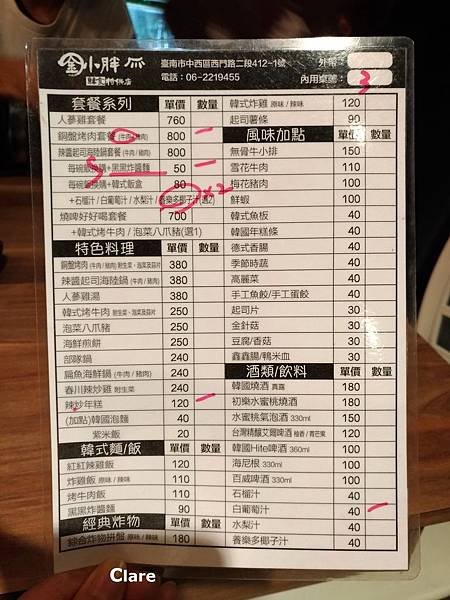 金小胖
韓食棺棧店
臺南市中西區西門路二段412-1號
電話：06-2219455
外帶：
內用桌號：3
套餐系列 單價 數量
人參雞套餐 760
銅盤烤肉套餐(牛肉/豬肉) 800
辣醬起司海陸鍋套餐(牛肉/豬肉) 800
每碗飯換購+黑黑炸醬麵 50
每碗飯換購+韓式飯盒 80
+石榴汁/白葡萄汁/水梨汁/養樂多椰子汁(選2) x2
燒啤好好喝套餐 700
+韓式烤牛肉/泡菜八爪豬(選1)
特色料理 單價 數量
銅盤烤肉(牛肉/豬肉)附生菜、泡菜及蒜片 380
辣醬起司海陸鍋(牛肉/豬肉) 380
人參雞湯 380
韓式烤牛肉 附生菜、泡菜及蒜片 250
泡菜八爪豬 250
海鮮煎餅 250
部隊鍋 240
扁魚海鮮鍋(牛肉/豬肉) 240
春川辣炒雞 附生菜 240
辣炒年糕 120
(加點)韓國泡麵 40
紫米飯 20
韓式麵/飯 單價 數量
紅紅辣雞飯 120
炸雞飯 原味/辣味 110
烤牛肉飯 110
黑黑炸醬麵 90
經典炸物 單價 數量
綜合炸物拼盤 原味/辣味 180
韓式炸雞 原味/辣味 120
起司薯條 90
風味加點 單價 數量
無骨牛小排 150
雪花牛肉 110
梅花豬肉 100
鮮蝦 100
韓式魚板 40
韓國年糕條 40
德式香腸 40
季節時蔬 40
高麗菜 40
手工魚餃/手工蛋餃 40
起司片 30
金針菇 30
豆腐/香菇 30
鑫鑫腸/鴨米血 30
酒類/飲料 單價 數量
韓國燒酒 真露 180
初樂水蜜桃燒酒 180
水蜜桃氣泡酒 330ml 150
台灣精釀艾爾啤酒 柚香/青芒蜜 120
韓國Hite啤酒 360ml 100
海尼根 330ml 100
百威啤酒 330ml 100
石榴汁 40
白葡萄汁 40
水梨汁 40
養樂多椰子汁 40
Clare